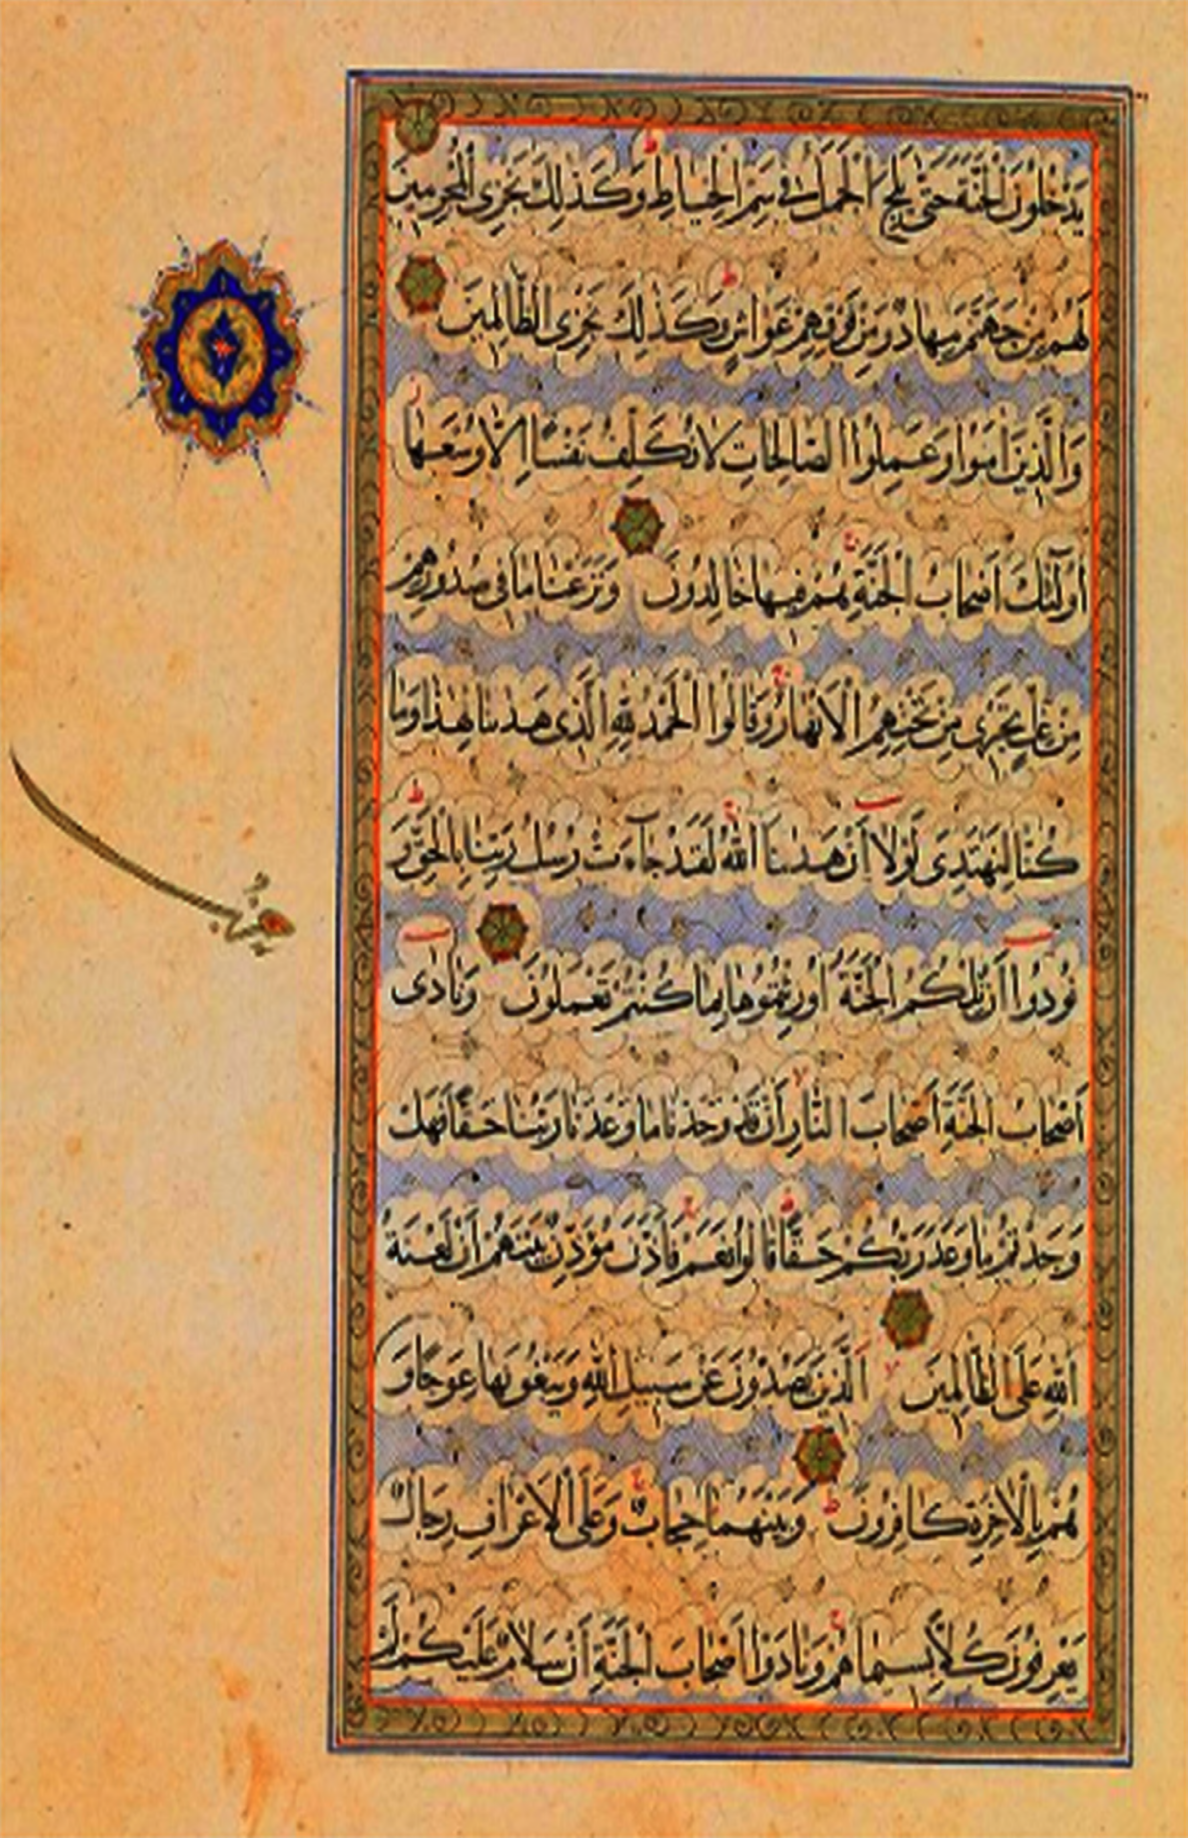 يَدْخُلُونَ الْجَنَّةَ حَتّٰى يَلِجَ الْجَمَلُ فِي سَمِّ الْخِيَاطِ ط وَكَذٰلِكَ نَجْزِي الْمُجْرِمِينَ
لَهُمْ مِنْ جَهَنَّمَ مِهَادٌ وَمِنْ فَوْقِهِمْ غَوَاشٍ ط وَكَذٰلِكَ نَجْزِي الظَّالِمِينَ
وَالَّذِينَ اٰمَنُوا وَعَمِلُوا الصَّالِحَاتِ لَا نُكَلِّفُ نَفْسًا اِلَّا وُسْعَهَا
اُولٰٓئِكَ اَصْحَابُ الْجَنَّةِ ج هُمْ فِيهَا خَالِدُونَ وَنَزَعْنَا مَا فِي صُدُورِهِمْ
مِنْ غِلٍّ تَجْرِي مِنْ تَحْتِهِمُ الْاَنْهَارُ ج وَقَالُوا الْحَمْدُ لِلّٰهِ الَّذِي هَدٰينَا لِهٰذَا وَمَا
كُنَّا لِنَهْتَدِيَ لَوْلَا اَنْ هَدٰينَا اللّٰهُ ج لَقَدْ جَآءَتْ رُسُلُ رَبِّنَا بِالْحَقِّ ط وَ
نُودُوا اَنْ تِلْكُمُ الْجَنَّةُ اُورِثْتُمُوهَا بِمَا كُنْتُمْ تَعْمَلُونَ وَنَادٰى
اَصْحَابُ الْجَنَّةِ اَصْحَابَ النَّارِ اَنْ قَدْ وَجَدْنَا مَا وَعَدَنَا رَبُّنَا حَقًّا فَهَلْ
وَجَدْتُمْ مَا وَعَدَ رَبُّكُمْ حَقًّا ط قَالُوا نَعَمْ ج فَاَذَّنَ مُؤَذِّنٌ بَيْنَهُمْ اَنْ لَعْنَةُ
اللّٰهِ عَلَى الظَّالِمِينَ لا اَلَّذِينَ يَصُدُّونَ عَنْ سَبِيلِ اللّٰهِ وَيَبْغُونَهَا عِوَجًا وَ
هُمْ بِالْاٰخِرَةِ كَافِرُونَ ط وَبَيْنَهُمَا حِجَابٌ ج وَعَلَى الْاَعْرَافِ رِجَالٌ
يَعْرِفُونَ كُلًّا بِسِيمَاهُمْ ج وَنَادَوْا اَصْحَابَ الْجَنَّةِ اَنْ سَلَامٌ عَلَيْكُمْ لَمْ